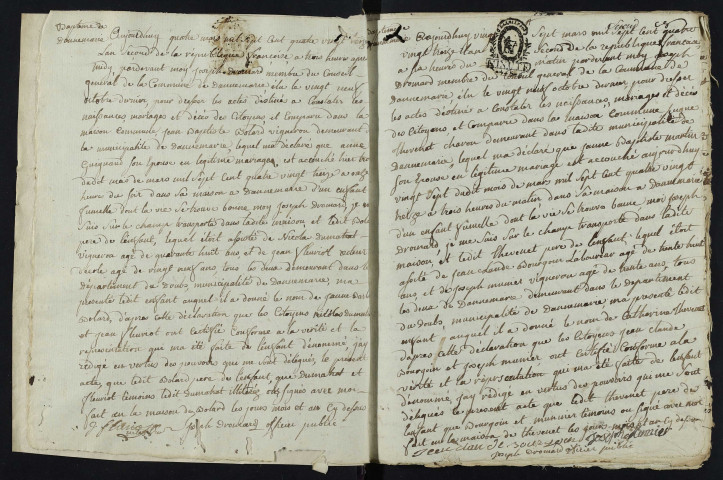 Baptême de
Dannemarie
aujourdhuy quatre mars mil sept cent quatre vingt
Lan second de la république francoise a heure apre
midy pardevant moy joseph Drouard membre du Conseil
general de la Commune de dannemarie élu le vingt neuf
octobre dernier, pour dresser les actes destiné a Constater les
naissances mariages et décès des Citoyens est Comparu dans la
maison Commune jean Baptiste Bolard vigneron demeurant dans
la municipalité de dannemarie, lequel ma déclaré que anne
son Epouse en legitime mariage, est accouché hier
dudit mois de mars mil sept cent quatre vingt treize a onze
heure du soir dans sa maison a dannemarie d'un enfant
fumelle dont la vie se trouve bonne moy joseph Drouard, je me
suis sur le champ transporté dans ladite maison et ledit Bolard
pere de l'enfant, lequel étoit assisté de Nicola dumahat
vigneron agé de quarante huit ans et de jean fleuriot recteur
d'école agé de vingt neuf ans, tous les deux demeurant dans le
département du doubs municipalité de dannemarie, ma
presenté ledit enfant auquel il a donné le nom de jeanne
Bolard, d'apres cette déclaration que les Citoyens nicolas dumahat
et jean fleuriot ont certifié Conforme a la verité et la
représentation qui ma été faite de l'enfant dénommé, j'ay
rédigé en vertus des pouvoirs qui me sont délegués, le présent
acte, que ledit Bolard pere de l'enfant, que dumahat et
fleuriot temoins ledit dumahat illitéré, ont signés avec moy
fait en la maison du Bolard les jours mois et an Cy dessus
joseph drouard officier public
aujourdhuy vingt sept mars mil sept cent quatre
vingt treize Lan second de la republique francoise
a heure du matin pardevant moy joseph
Drouard membre du Conseil general de la Commune de
dannemarie élu le vingt neuf octobre dernier, pour dresser
les actes destiné a Constater les naissances, mariages et décès
des Citoyens est Comparu dans la maison Commune
thevenot charon demeurant dans ladite municipalité de
dannemarie, lequel ma déclaré que jeanne Baptiste martin
son Epouse en legitime mariage est accouché aujourdhuy
vingt sept dudit mois de mars mil sept cent quatre vingt
treize a trois heures du matin dans sa maison a dannemarie
d'un enfant fumelle dont la vie se trouva bonne moy joseph
Drouard je me suis sur le champ transporté dans ladite
maison et ledit thevenot pere de l'enfant, lequel étoit
assisté de jean Claude Bourgoin Laboureur agé de trente huit
ans et de joseph munier vigneron agé de trente ans, tous
les deux de dannemarie demeurant dans le departement
du doubs, municipalité de dannemarie ma presenté ledit
enfant auquel il a donné le nom de Catherine thevenot
d'apres cette déclaration que les Citoyens jean claude
Bourgoin et joseph munier ont certifié Conforme a la
vérité et la représentation qui ma été faite de l'enfant
dénommé, j'ay redigé en vertus des pouvoirs qui me sont
délegués le présent acte que ledit thevenot pere de
l'enfant que Bourgoin et munier témoins on signé avec moy
fait en la maison de thevenot les jours mois et an cy dessus
jean claude Bourgoin joseph munier
joseph drouard officier public